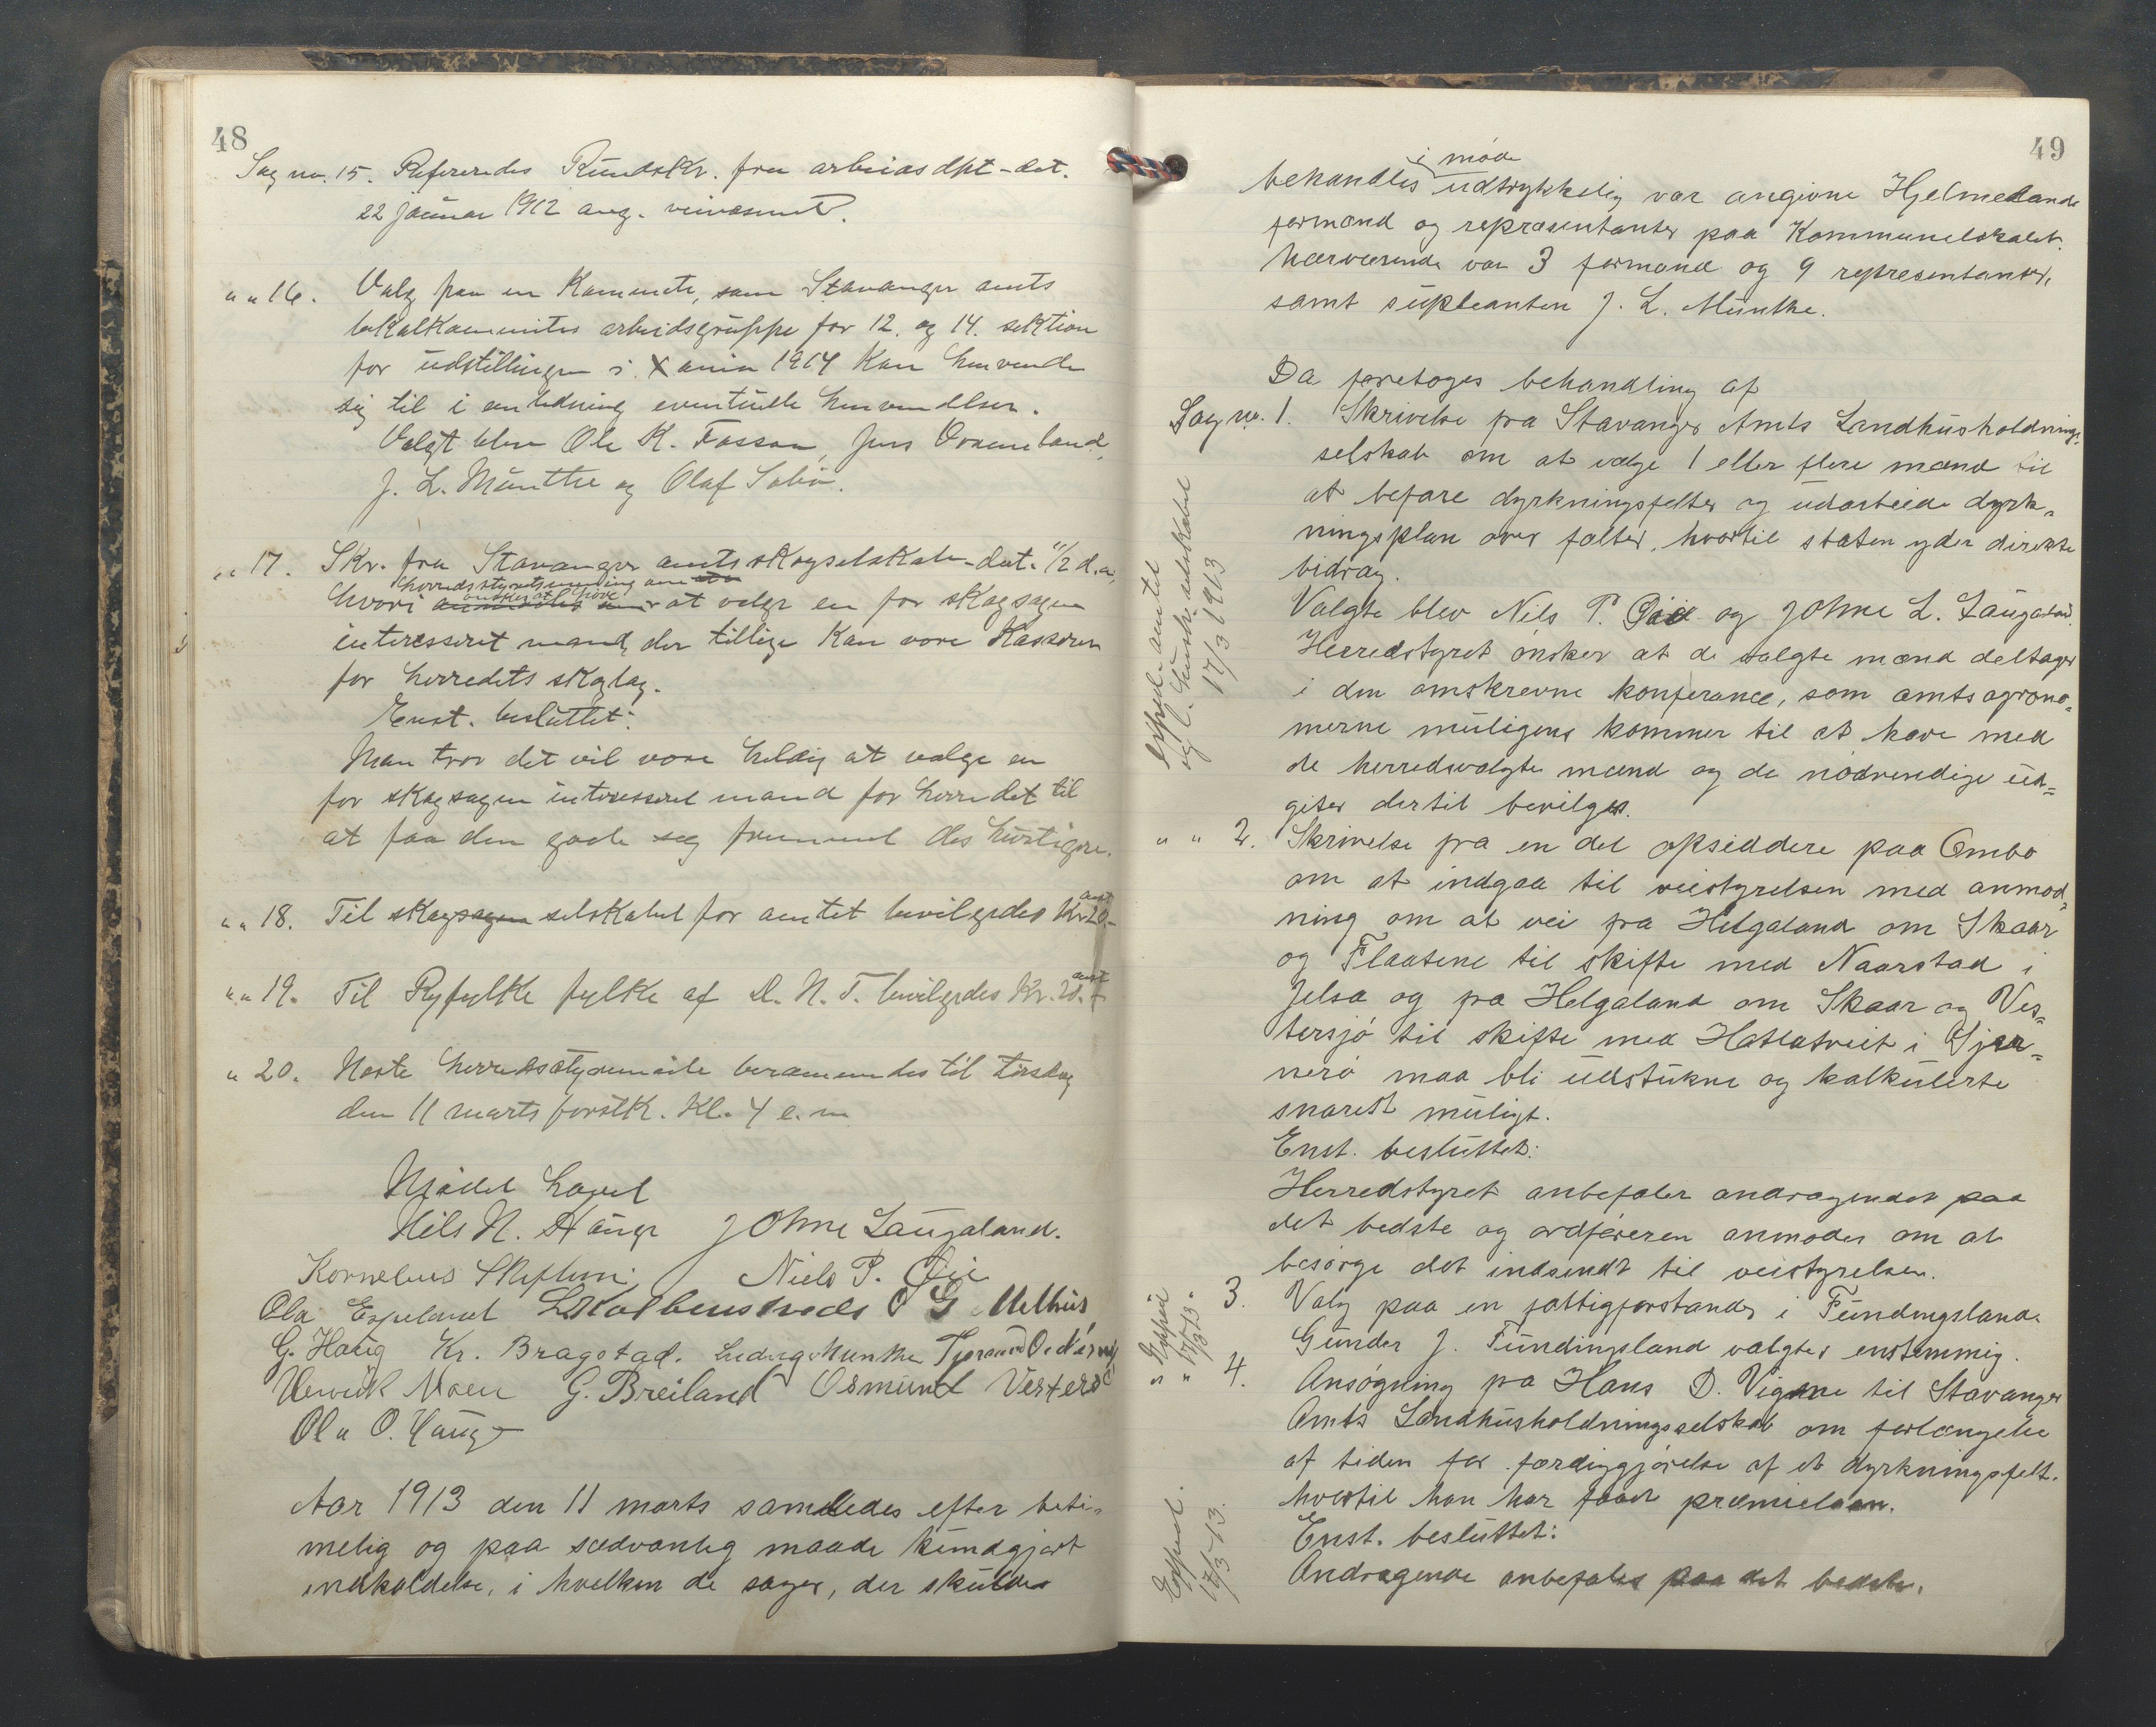 48
Sag no. 15. Refereredes Rundskr. fra arbeidsdpt - dat.
22 januar 1912 ang. veivæsenet.
" " 16. Valg paa en Kommite, som Stavanger amts
lokalkommites arbeidsgruppe for 12. og 14. sektion
for udstillingen i Xania 1914 kan henvende
sig til i anledning eventuelle henvendelser.
Valgt blev Ole K. Fossan, Jens
J. L. Munthe og Olaf Sabø.
" " 17. Skr. fra Stavanger amts skogselskab - dat. 11/2 d.a,
herredsstyrets mening om
ønsker at høre
hvori anmodes om at velge en for skogsagen
interesseret mand, der tillige kan være Kasserer
for herredets skoglag.
Enst. besluttet:
Man tror det vil være heldig at vælge en
for skogsagen interesseret mand for herredet til
at faa den gode sag fremmet des hurtigere.
" " 18. Til skogsagen selskabet for amtet bevilgedes Kr. 20.-
enst
" " 19. Til Ryfylke fylke af D. N. T. bevilgedes Kr. 20.-
enst
" 20. Næste herredsstyremøde berammedes til tirsdag
den 11 marts førstk. Kl. 4 e. m
Mødet hævet
Nils N. Hauge Johne Laugaland.
Kornelius Skiftun Niels P. Øie
Ola Espeland L Kolbenstvedt O G Melhus
G. Haug Kr. Bragstad. Ludvig Munthe Tjerand O. Nærug
Henrik Moen G. Breiland Osmund Vestersø
Ola O. Hauge
Aar 1913 den 11 marts samledes efter beti-
melig og paa sædvanlig maade kundgjort
indkaldelse, i hvilken de sager, der skulde
49
i møde
behandles udtrykkelig var angivne Hjelmelands
formænd og repræsentanter paa Kommunelokalet.
Nærværende var 3 formænd og 9 repræsentanter,
samt supleanten J. L. Munthe.
Da foretoges behandling af
Sag no. 1. Skrivelse fra Stavanger Amts Landhusholdnings-
selskab om at vælge 1 eller flere mænd til
at befare dyrkningsfelter og udarbeide dyrk-
ningsplan over felter, hvortil staten yder direkte
bidrag.
Valgte blev Nils P. Øie og Johne L. Laugaland.
Herredstyret ønsker at de valgte mænd deltager
i den omskrevne konferance, som amtsagrono-
merne muligens kommer til at have med
de herredsvalgte mænd og de nødvendige ud-
gifter dertil bevilges.
Exped. amtet
og l. hush. selskabet
17/3 1913
" " 2. Skrivelse fra en del opsiddere paa Ombo
om at indgaa til veistyrelsen med anmod-
ning om at vei fra Helgaland om Skaar
og Flaatene til skifte med Naarstad i
Jelsa og fra Helgaland om Skaar og Ves-
tersjø til skifte med Hatlatveit i Sjer-
nerø maa bli udstukne og kalkulerte
snarest muligt.
Enst. besluttet:
Herredstyret anbefaler andragendet paa
det bedste og ordføreren anmodes om at
besørge det indsendt til veistyrelsen.
3. Valg paa en fattigforstander i Fundingsland.
Gunder J. Fundingsland valgtes enstemmig.
Exped
17/3 13.
" " 4. Ansøgning fra Hans D. Vigane til Stavanger
Amts Landhusholdningsselskab om forlængelse
af tiden for færdiggjørelse af et dyrkningsfelt.
hvortil han har faaet præmielaan.
Enst. besluttet:
Andragende anbefales paa det bedste.
Exped.
17/3-13.